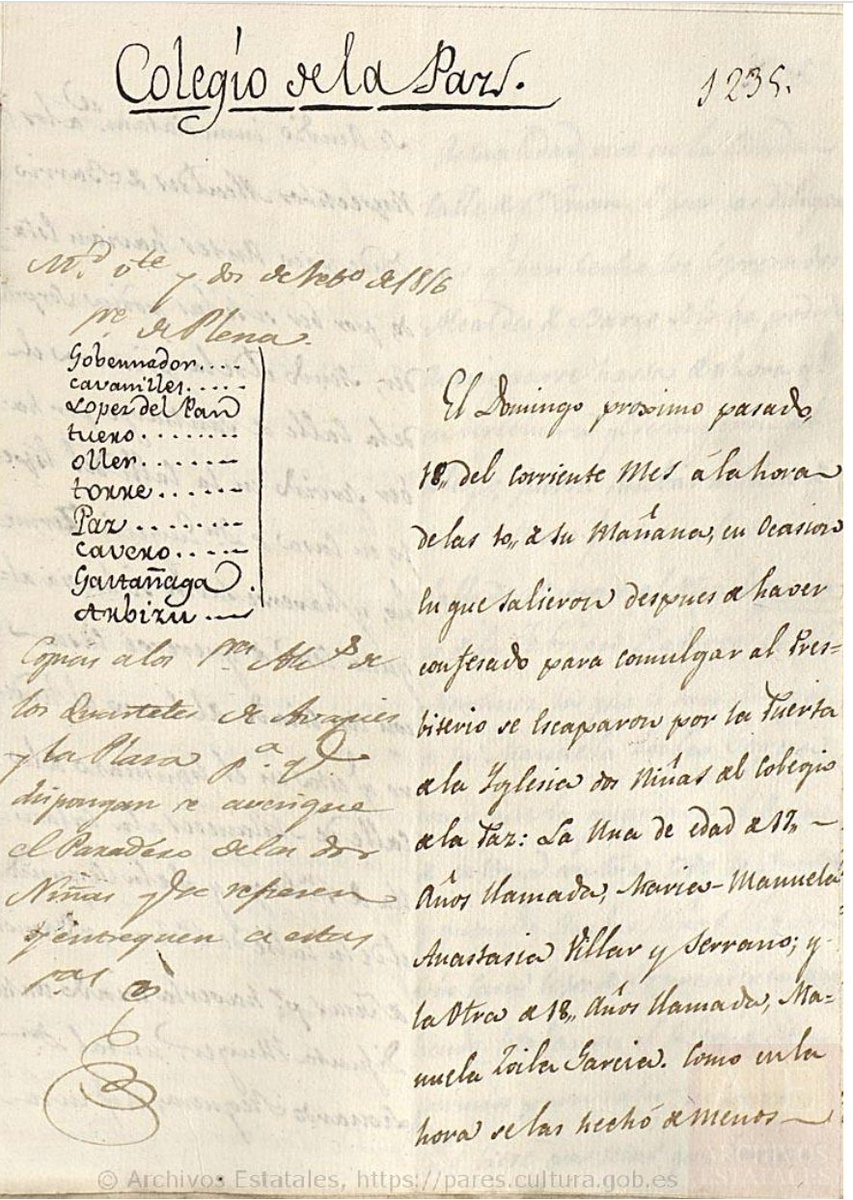 Colegio de la Paz.
1235.
M.d v.te y dos de Febo de 1816
pre de Plena.
Gobernador....
Cavanilles.....
Lopez del Pan
tuero........
oller.......
torre......
Paz........
Cavero.....
Gaitañaga.
Arbizu....
Copias a los
los Quarteles de Avapies
y la Plaza p.a q.e
dispongan se averigue
el Paradero de las dos
Niñas q.e se refieren
y entreguen a estas
El Domingo proximo pasado,
18,, del corriente Mes á la hora
de las 10,, de su Mañana, en Ocasion
en que salieron despues de haver
confesado para comulgar al Pres=
biterio se Escaparon por la Puerta
de la Yglesia dos Niñas del Colegio
de la Paz: La Una de edad de 17,,
Años llamada, Maria-Manuela
Anastasia Villar y Serrano; y
la Otra de 18,, Años llamada, Ma=
nuela Zoila Garcia. Como en la
hora se las hechó de Menos
© Archivos Estatales, https://pares.cultura.gob.es